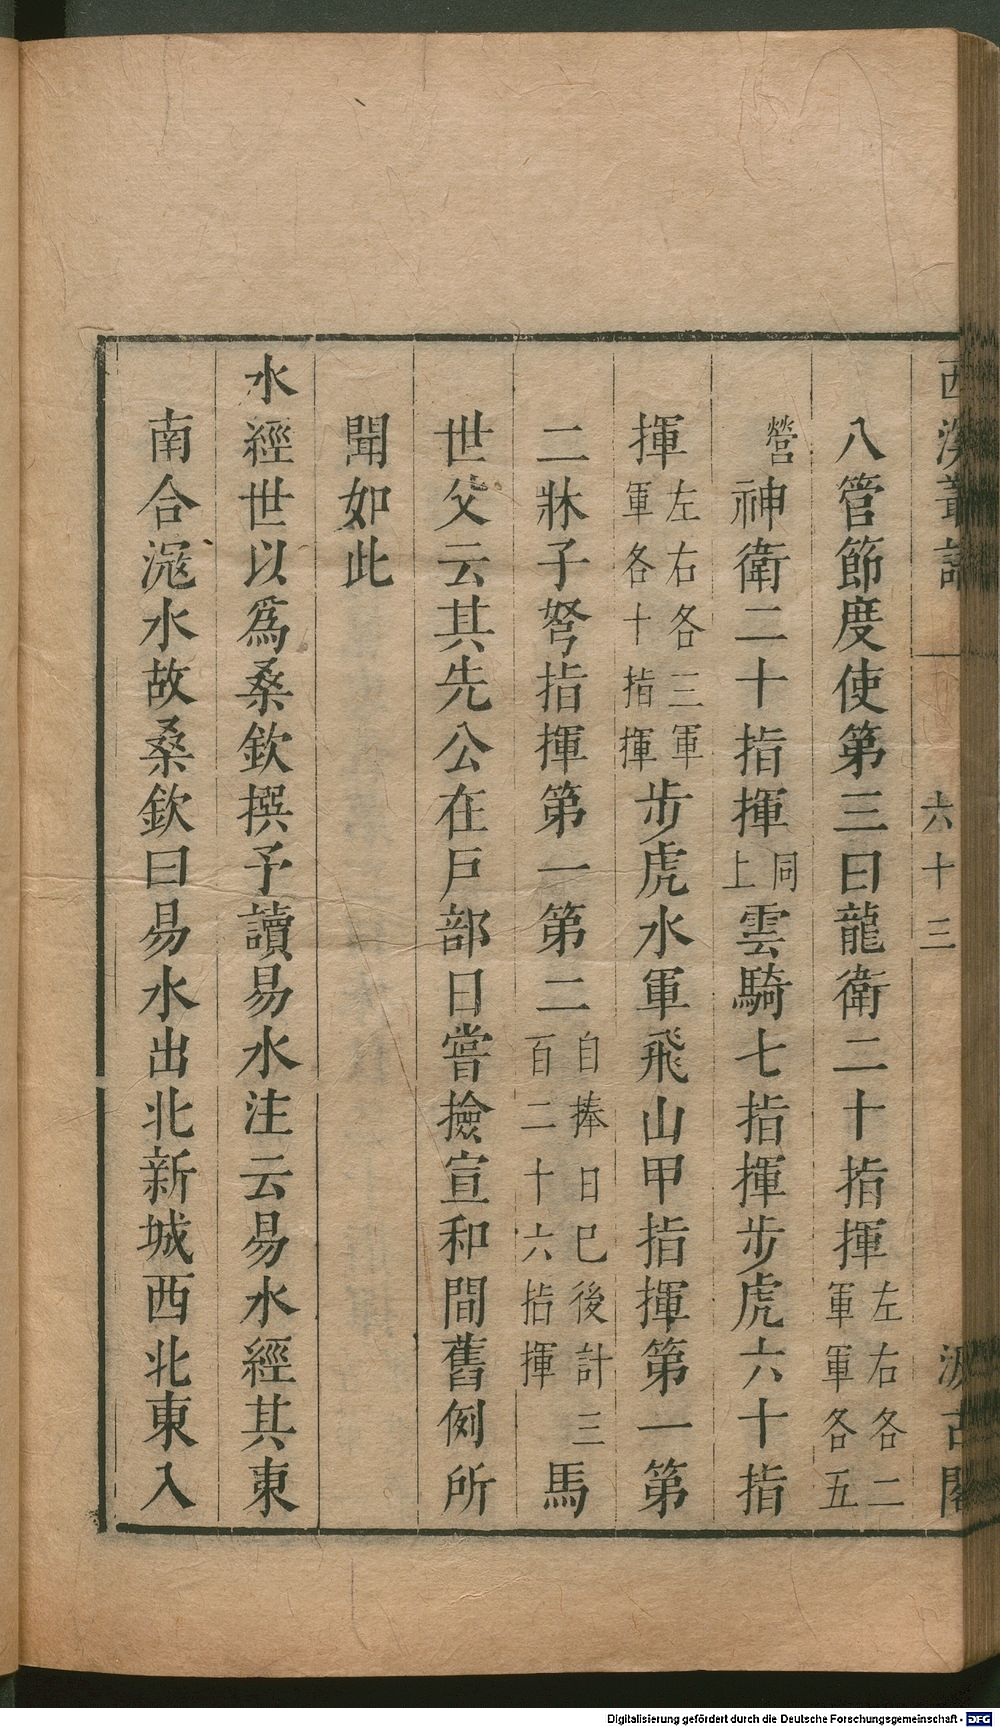 西溪叢語 六十三 汲古閣
八管節度使第三曰龍衛二十指揮左右各二軍軍各五
營神衛二十指揮同上雲騎七指揮步虎六十指
揮左右各三軍軍各十指揮步虎水軍飛山甲指揮第一第
二牀子弩指揮第一第二自捧日巳後計三百二十六指揮馬
世父云其先公在戸部日嘗撿宣和間舊例所
聞如此
水經世以爲桑欽撰予讀易水注云易水經其東
南合滱水故桑欽曰易水出北新城西北東入
Digitalisierung gefördert durch die Deutsche Forschungsgemeinschaft - DFG